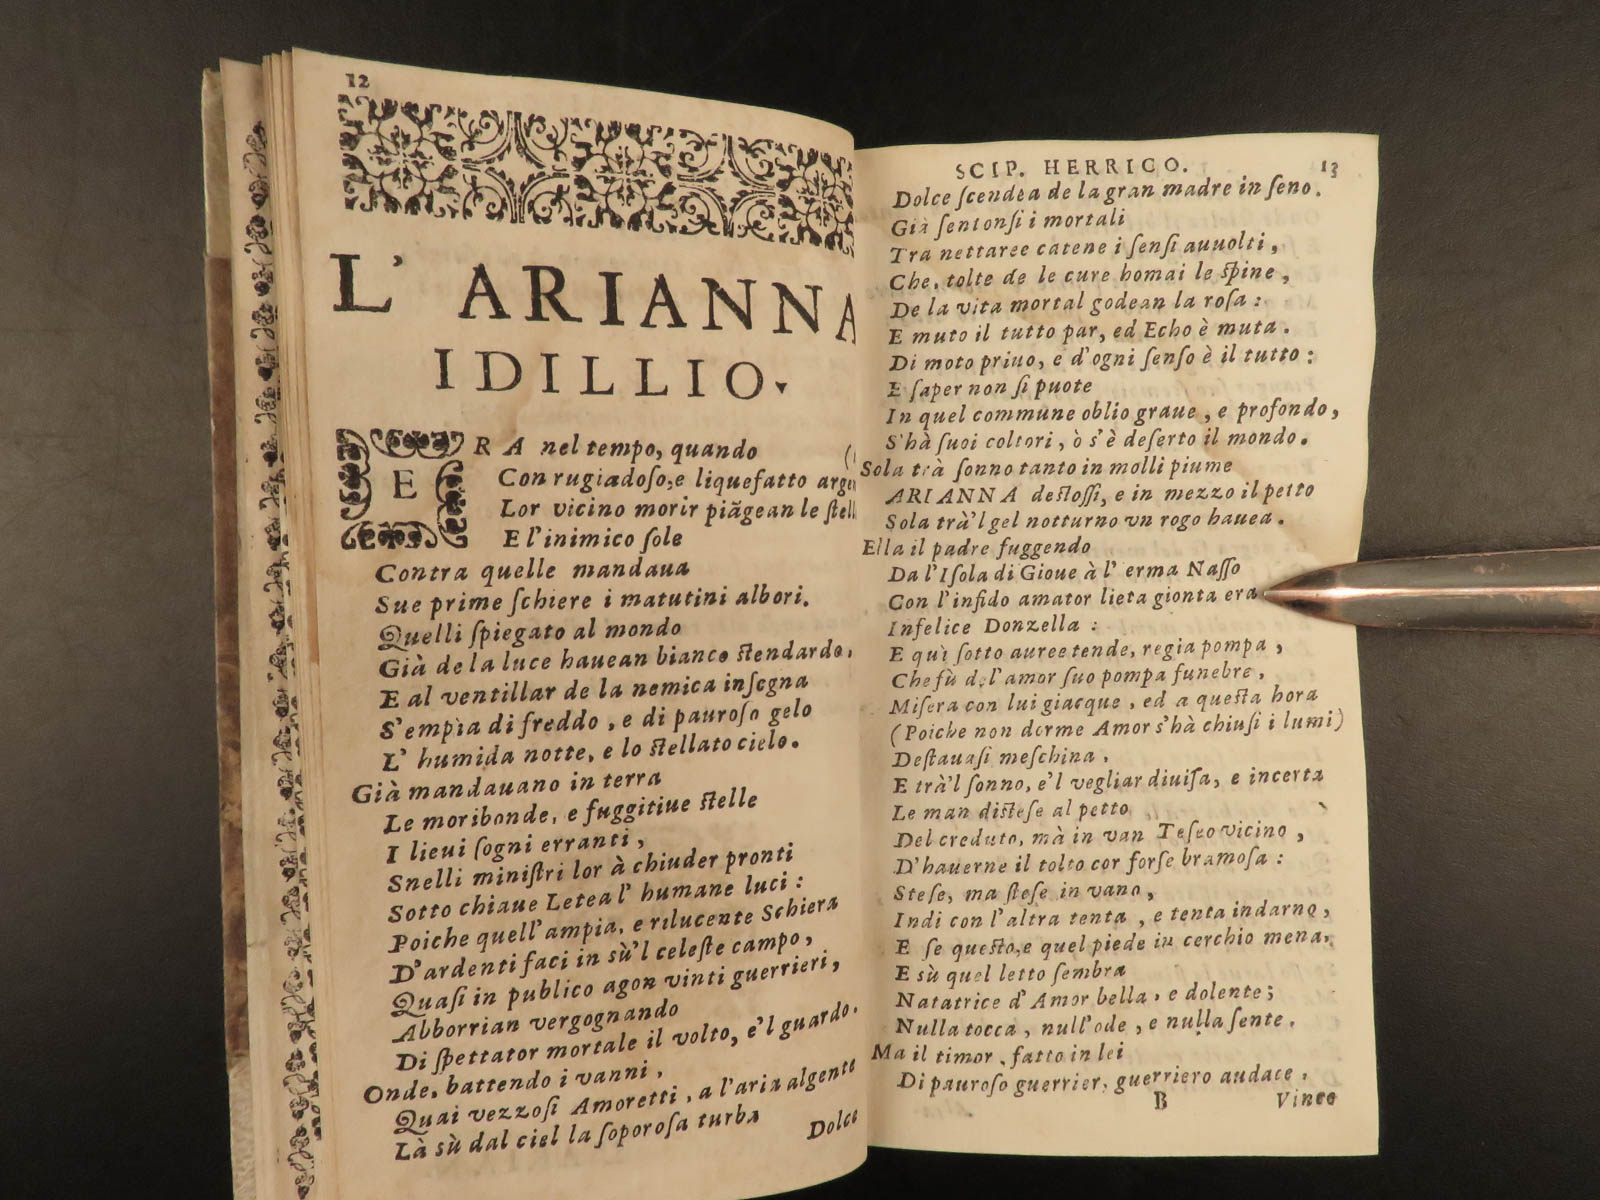 12
L' ARIANNA
IDILLIO.
ERA nel tempo, quando
Con rugiadoso, e liquefatto arge
Lor vicino morir piãgean le stell
E l'inimico sole
Contra quelle mandaua
Sue prime schiere i matutini albori.
Quelli spiegato al mondo
Già de la luce hauean bianco stendardo,
E al ventillar de la nemica insegna
S'empia di freddo, e di pauroso gelo
L' humida notte, e lo stellato cielo.
Già mandauano in terra
Le moribonde, e fuggitiue stelle
I lieui sogni erranti,
Snelli ministri lor à chiuder pronti
Sotto chiaue Letea l' humane luci:
Poiche quell'ampia, e rilucente Schiera
D'ardenti faci in sù'l celeste campo,
Quasi in publico agon vinti guerrieri,
Abborrian vergognando
Di spettator mortale il volto, e'l guardo.
Onde, battendo i vanni,
Quai vezzosi Amoretti, a l'aria algente
Là sù dal ciel la soporosa turba
Dolce
SCIP. HERRICO. 13
Dolce scendea de la gran madre in seno.
Già sentonsi i mortali
Tra nettaree catene i sensi auuolti,
Che, tolte de le cure homai le spine,
De la vita mortal godean la rosa:
E muto il tutto par, ed Echo è muta.
Di moto priuo, e d'ogni senso è il tutto:
E saper non si puote
In quel commune oblio graue, e profondo,
S'hà suoi coltori, ò s'è deserto il mondo.
Sola trà sonno tanto in molli piume
ARIANNA destossi, e in mezzo il petto
Sola trà'l gel notturno vn rogo hauea.
Ella il padre fuggendo
Da l'Isola di Gioue à l' erma Nasso
Con l'infido amator lieta gionta era
Infelice Donzella:
E quì sotto auree tende, regia pompa,
Che fù del'amor suo pompa funebre,
Misera con lui giacque, ed a questa hora
(Poiche non dorme Amor s'hà chiusi i lumi)
Destauasi meschina,
E trà'l sonno, e'l vegliar diuisa, e incerta
Le man distese al petto
Del creduto, mà in van Teseo vicino,
D'hauerne il tolto cor forse bramosa:
Stese, ma stese in vano,
Indi con l'altra tenta, e tenta indarno,
E se questo, e quel piede in cerchio mena,
E sù quel letto sembra
Natatrice d'Amor bella, e dolente;
Nulla tocca, null'ode, e nulla sente.
Ma il timor, fatto in lei
Di pauroso guerrier, guerriero audace,
B Vince